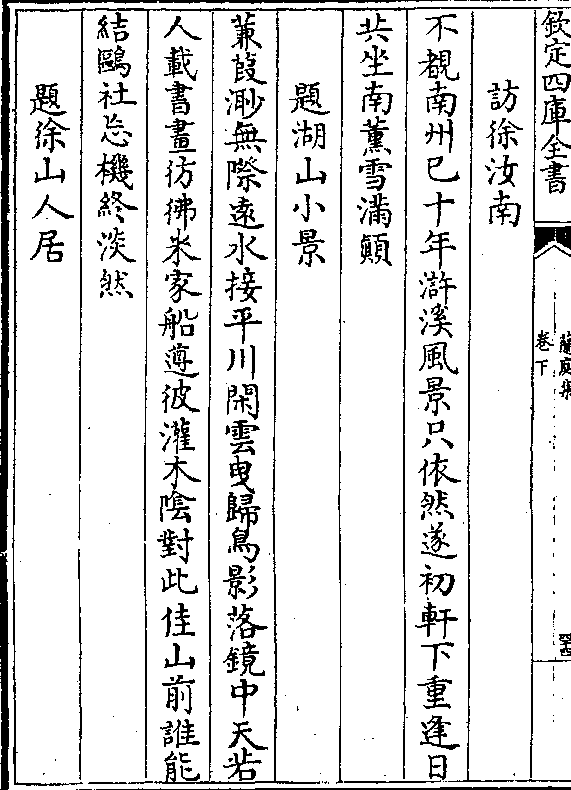 欽定四庫全書
蘭庭集
卷下
訪徐汝南
不覩南州已十年滸溪風景只依然遂初軒下重逢日
共坐南薰雪滿顛
題湖山小景
蒹葭渺無際遠水接平川閑雲曳歸鳥影落鏡中天若
人載書畫彷彿米家船遵彼灌木陰對此佳山前誰能
結鷗社忘機終淡然
題徐山人居